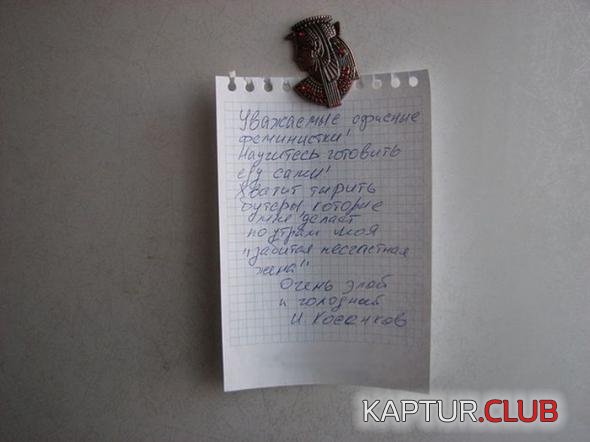 Уважаемые офисные
феминистки!
Научитесь готовить
еду сами!
Хватит тырить
бутеры, которые
мне делает
по утрам моя
"забитая несчастная
жена"!
Очень злой
и голодный
И. Косенков
KAPTUR.CLUB